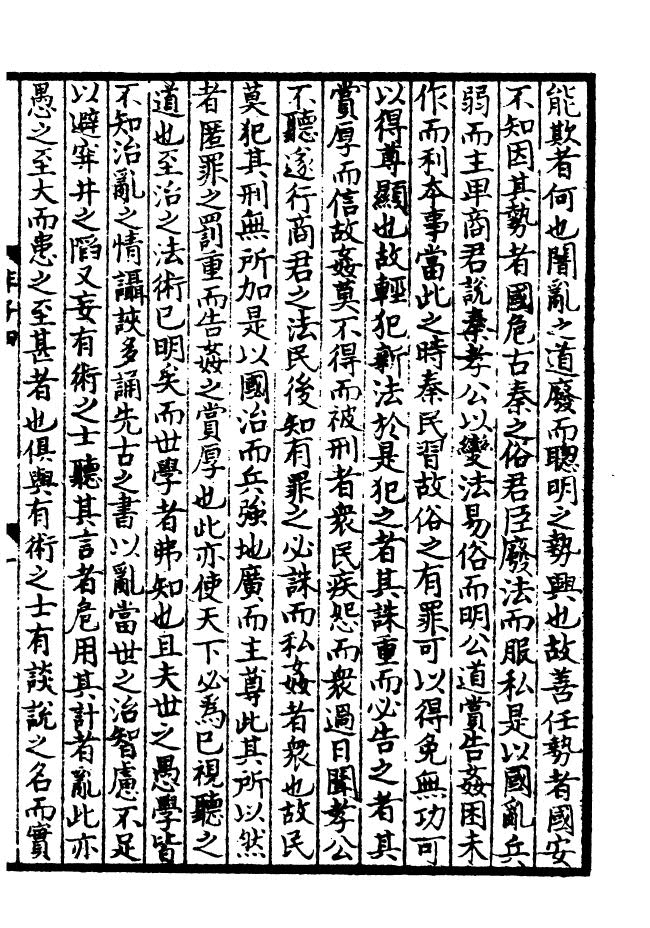 能欺者何也闇亂之道廢而聰明之勢興也故善任勢者國安
不知因其勢者國危古秦之俗君臣廢法而服私是以國亂兵
弱而主卑商君說秦孝公以變法易俗而明公道賞告姦困末
作而利本事當此之時秦民習故俗之有罪可以得免無功可
以得尊顯也故輕犯新法於是犯之者其誅重而必告之者其
賞厚而信故姦莫不得而被刑者衆民疾怨而衆過日聞孝公
不聽遂行商君之法民後知有罪之必誅而私姦者衆也故民
莫犯其刑無所加是以國治而兵強地廣而主尊此其所以然
者匿罪之罰重而告姦之賞厚也此亦使天下必爲已視聽之
道也至治之法術已明矣而世學者弗知也且夫世之愚學皆
不知治亂之情讘䛟多誦先古之書以亂當世之治智慮不足
以避穽井之陷又妄有術之士聽其言者危用其計者亂此亦
愚之至大而患之至甚者也俱與有術之士有談說之名而實